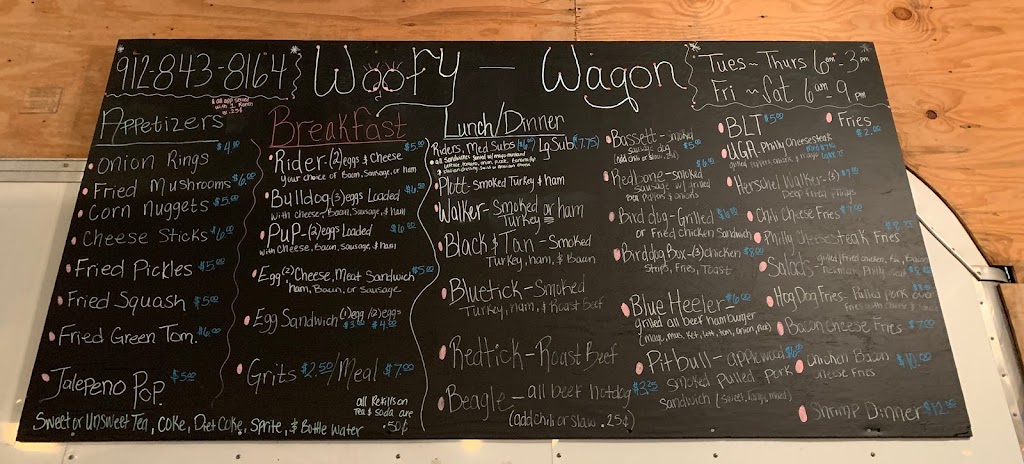 912-843-8164
Woofy - Wagon
Tues ~ Thurs 6am - 3pm
Fri ~ Sat 6am 9pm
Appetizers
onion Rings $4.00
Fried Mushrooms $6.00
Corn nuggets $5.00
Cheese Sticks $6.00
Fried Pickles $5.00
Fried Squash $5.00
Fried Green Tom. $6.00
Jalepeno Pop. $5.00
Breakfast
Rider-(2)eggs & Cheese $5.00
your choice of Bacon, Sausage, or ham
Bulldog(3)eggs Loaded $6.00
with Cheese-Bacon, Sausage, & ham
Pup-(2)eggs Loaded
with Cheese, Bacon, Sausage, & ham
Egg(2)Cheese, Meat Sandwich $5.00
ham, Bacon, or Sausage
Egg Sandwich (1)egg (2)eggs
$3.00 $4.00
Grits $2.50/Meal $7.00
Sweet or UnSweet Tea, Coke, Diet Coke, Sprite, & Bottle Water
all Refills on
Tea & Soda are
.50¢
Lunch/Dinner
Riders, Med Subs Lg Sub $7.75
Plott-Smoked Turkey & ham
Walker-Smoked or ham
Turkey
Black & Tan-Smoked
Turkey, ham, & Bacon
Bluetick-Smoked
Turkey, ham, & Roast Beef
Redtick-Roast Beef
Beagle-all beef hotdog $3.25
(add chili or slaw .25¢)
Bassett-Smoked
Sausage dog $5.00
(add chili or slaw .25¢)
Redbone-smoked
Sausage w/ grilled
Peppers & onions
Bird dog-Grilled
or Fried chicken Sandwich
Birddog Box-(3)chicken $8.00
Strips, Fries, Toast
Blue Heeler- $6.00
grilled all beef Hamburger
(mayo, mus, Ket, let, tom, onion, Pick)
Pitbull-applewood $6.00
Smoked Pulled Pork
Sandwich
BLT $5.00
Fries
$2.00
UGA-Philly cheesesteak
Herschel Walker-
Chili Cheese Fries $7.00
Philly Cheesesteak Fries
Salads-
Hog Dog Fries-Pulled Pork over
Bacon Cheese Fries $7.00
Chicken Bacon $10.00
Cheese Fries
Shrimp Dinner